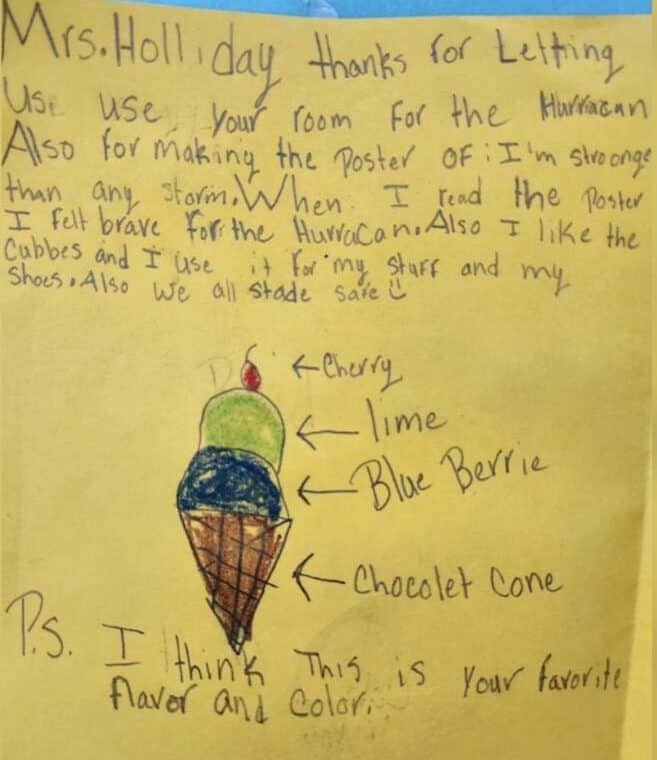 Mrs. Holliday thanks for Letting
Us use your room for the Hurriacan
Also for making the Poster OF : I'm stroonge
than any storm. When I read the Poster
I felt brave for the Hurracan. Also I like the
Cubbes and I use it for my stuff and my
Shoes. Also we all stade safe
←Cherry
←lime
←Blue Berrie
←Chocolet Cone
P.S. I think This is Your favorite
flavor and Color.